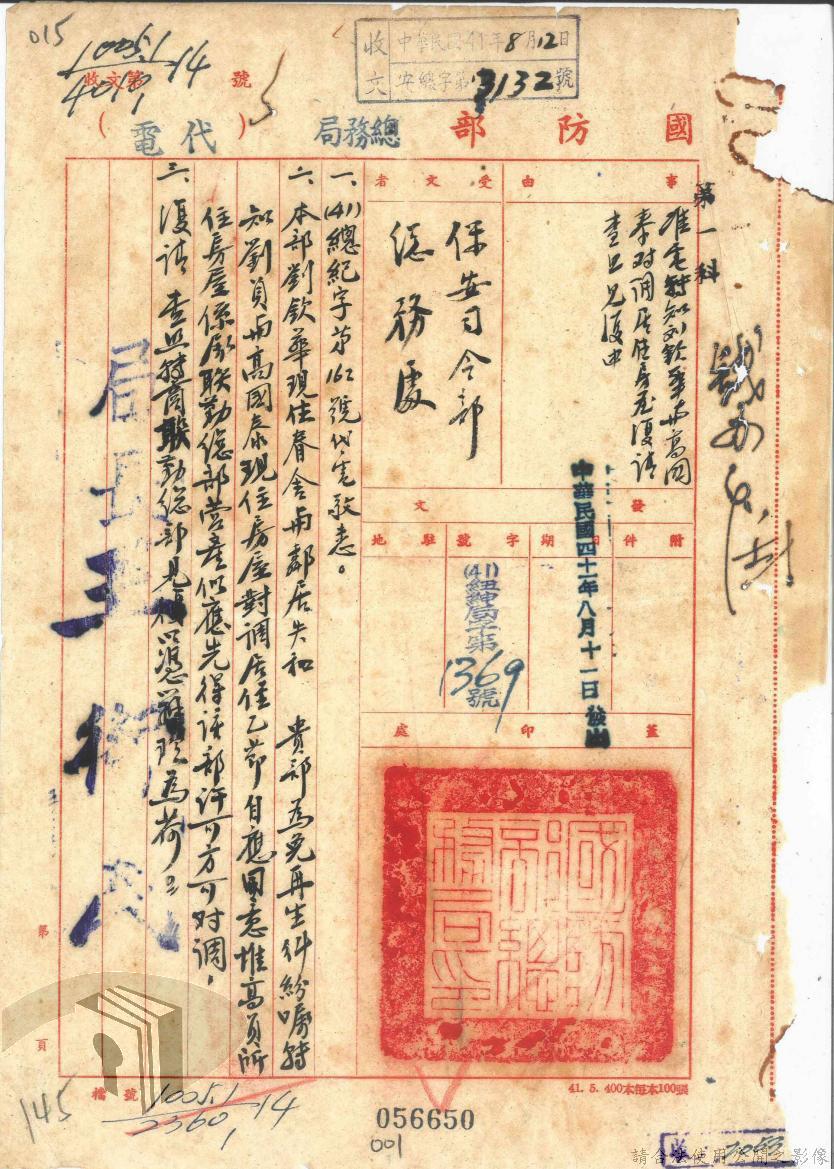 015
1005.1
4010
14
收文第 號
收文
中華民國41年8月12日
安總字第3132號
國防部總務局(代電)
第一科
事由
准電對知刘欽華与高國
泰对调居住房屋復請
查照見復由
受文者
保安司令部
總務處
發文
附件
日期
字號
駐地
中華民國四十一年八月十一日發出
(41)紐紳局字第
1369
號
蓋印處
國防部總務局印
一、(41)總紀字第162號代電敬悉。
二、本部劉欽華現住眷舍与鄰居失和 貴部為免再生糾紛囑轉
知劉員与高國泰現住房屋對調居住乙節自應同意惟高員所
住房屋係屬联勤總部營產似應先得該部許可方可对调。
三、復請 查照轉商联勤總部見復以憑辦理為荷。
局長王
第 頁
檔號
1005.1
2360
14
145
056650
001
41. 5. 400本每本100張
請合法使用公開之影像